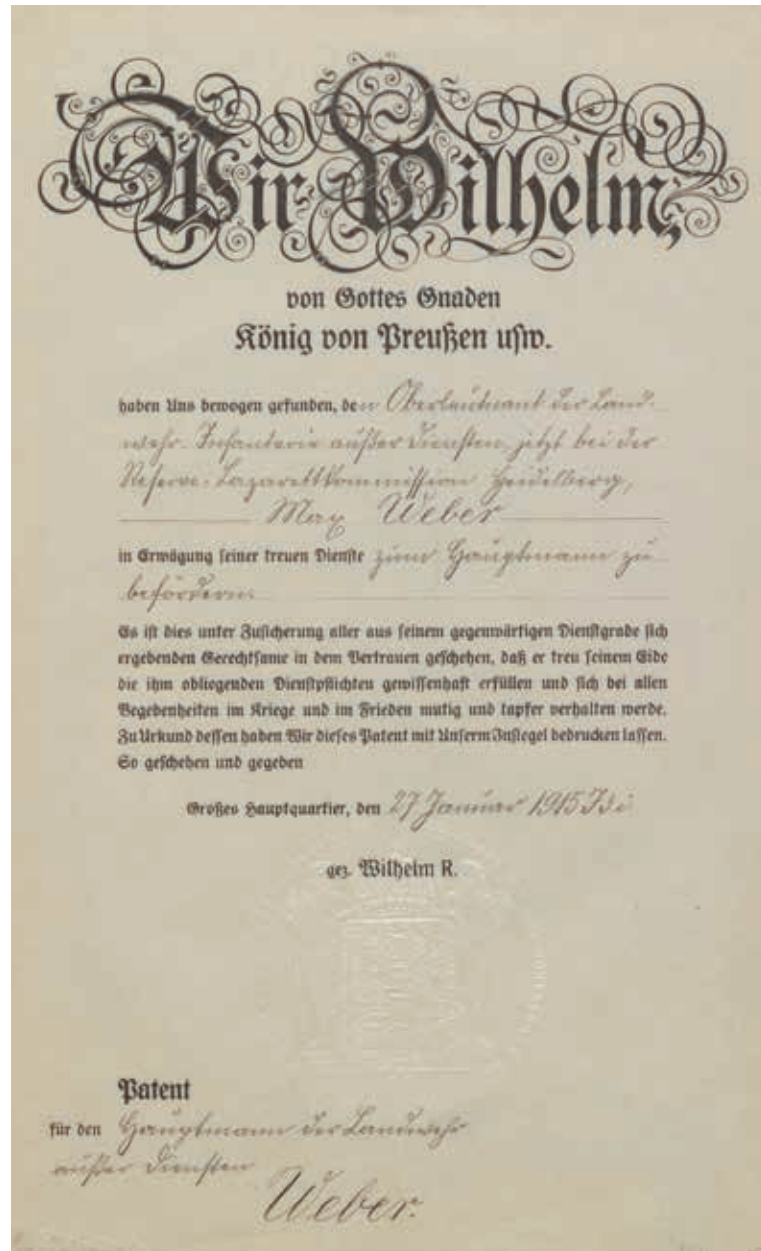 Wir Wilhelm,
von Gottes Gnaden
König von Preußen usw.
haben Uns bewogen gefunden, den Oberleutnant der Land-
wehr-Infanterie außer Diensten, jetzt bei der
Reserve-Lazarettkommission Heidelberg,
Max Weber
in Erwägung seiner treuen Dienste zum Hauptmann zu
befördern.
Es ist dies unter Zusicherung aller aus seinem gegenwärtigen Dienstgrade sich
ergebenden Gerechtsame in dem Vertrauen geschehen, daß er treu seinem Eide
die ihm obliegenden Dienstpflichten gewissenhaft erfüllen und sich bei allen
Begebenheiten im Kriege und im Frieden mutig und tapfer verhalten werde.
Zu Urkund dessen haben Wir dieses Patent mit Unserm Insiegel bedrucken lassen.
So geschehen und gegeben
Großes Hauptquartier, den 27 Januar 1915
gez. Wilhelm R.
Patent
für den Hauptmann der Landwehr
außer Diensten
Weber.